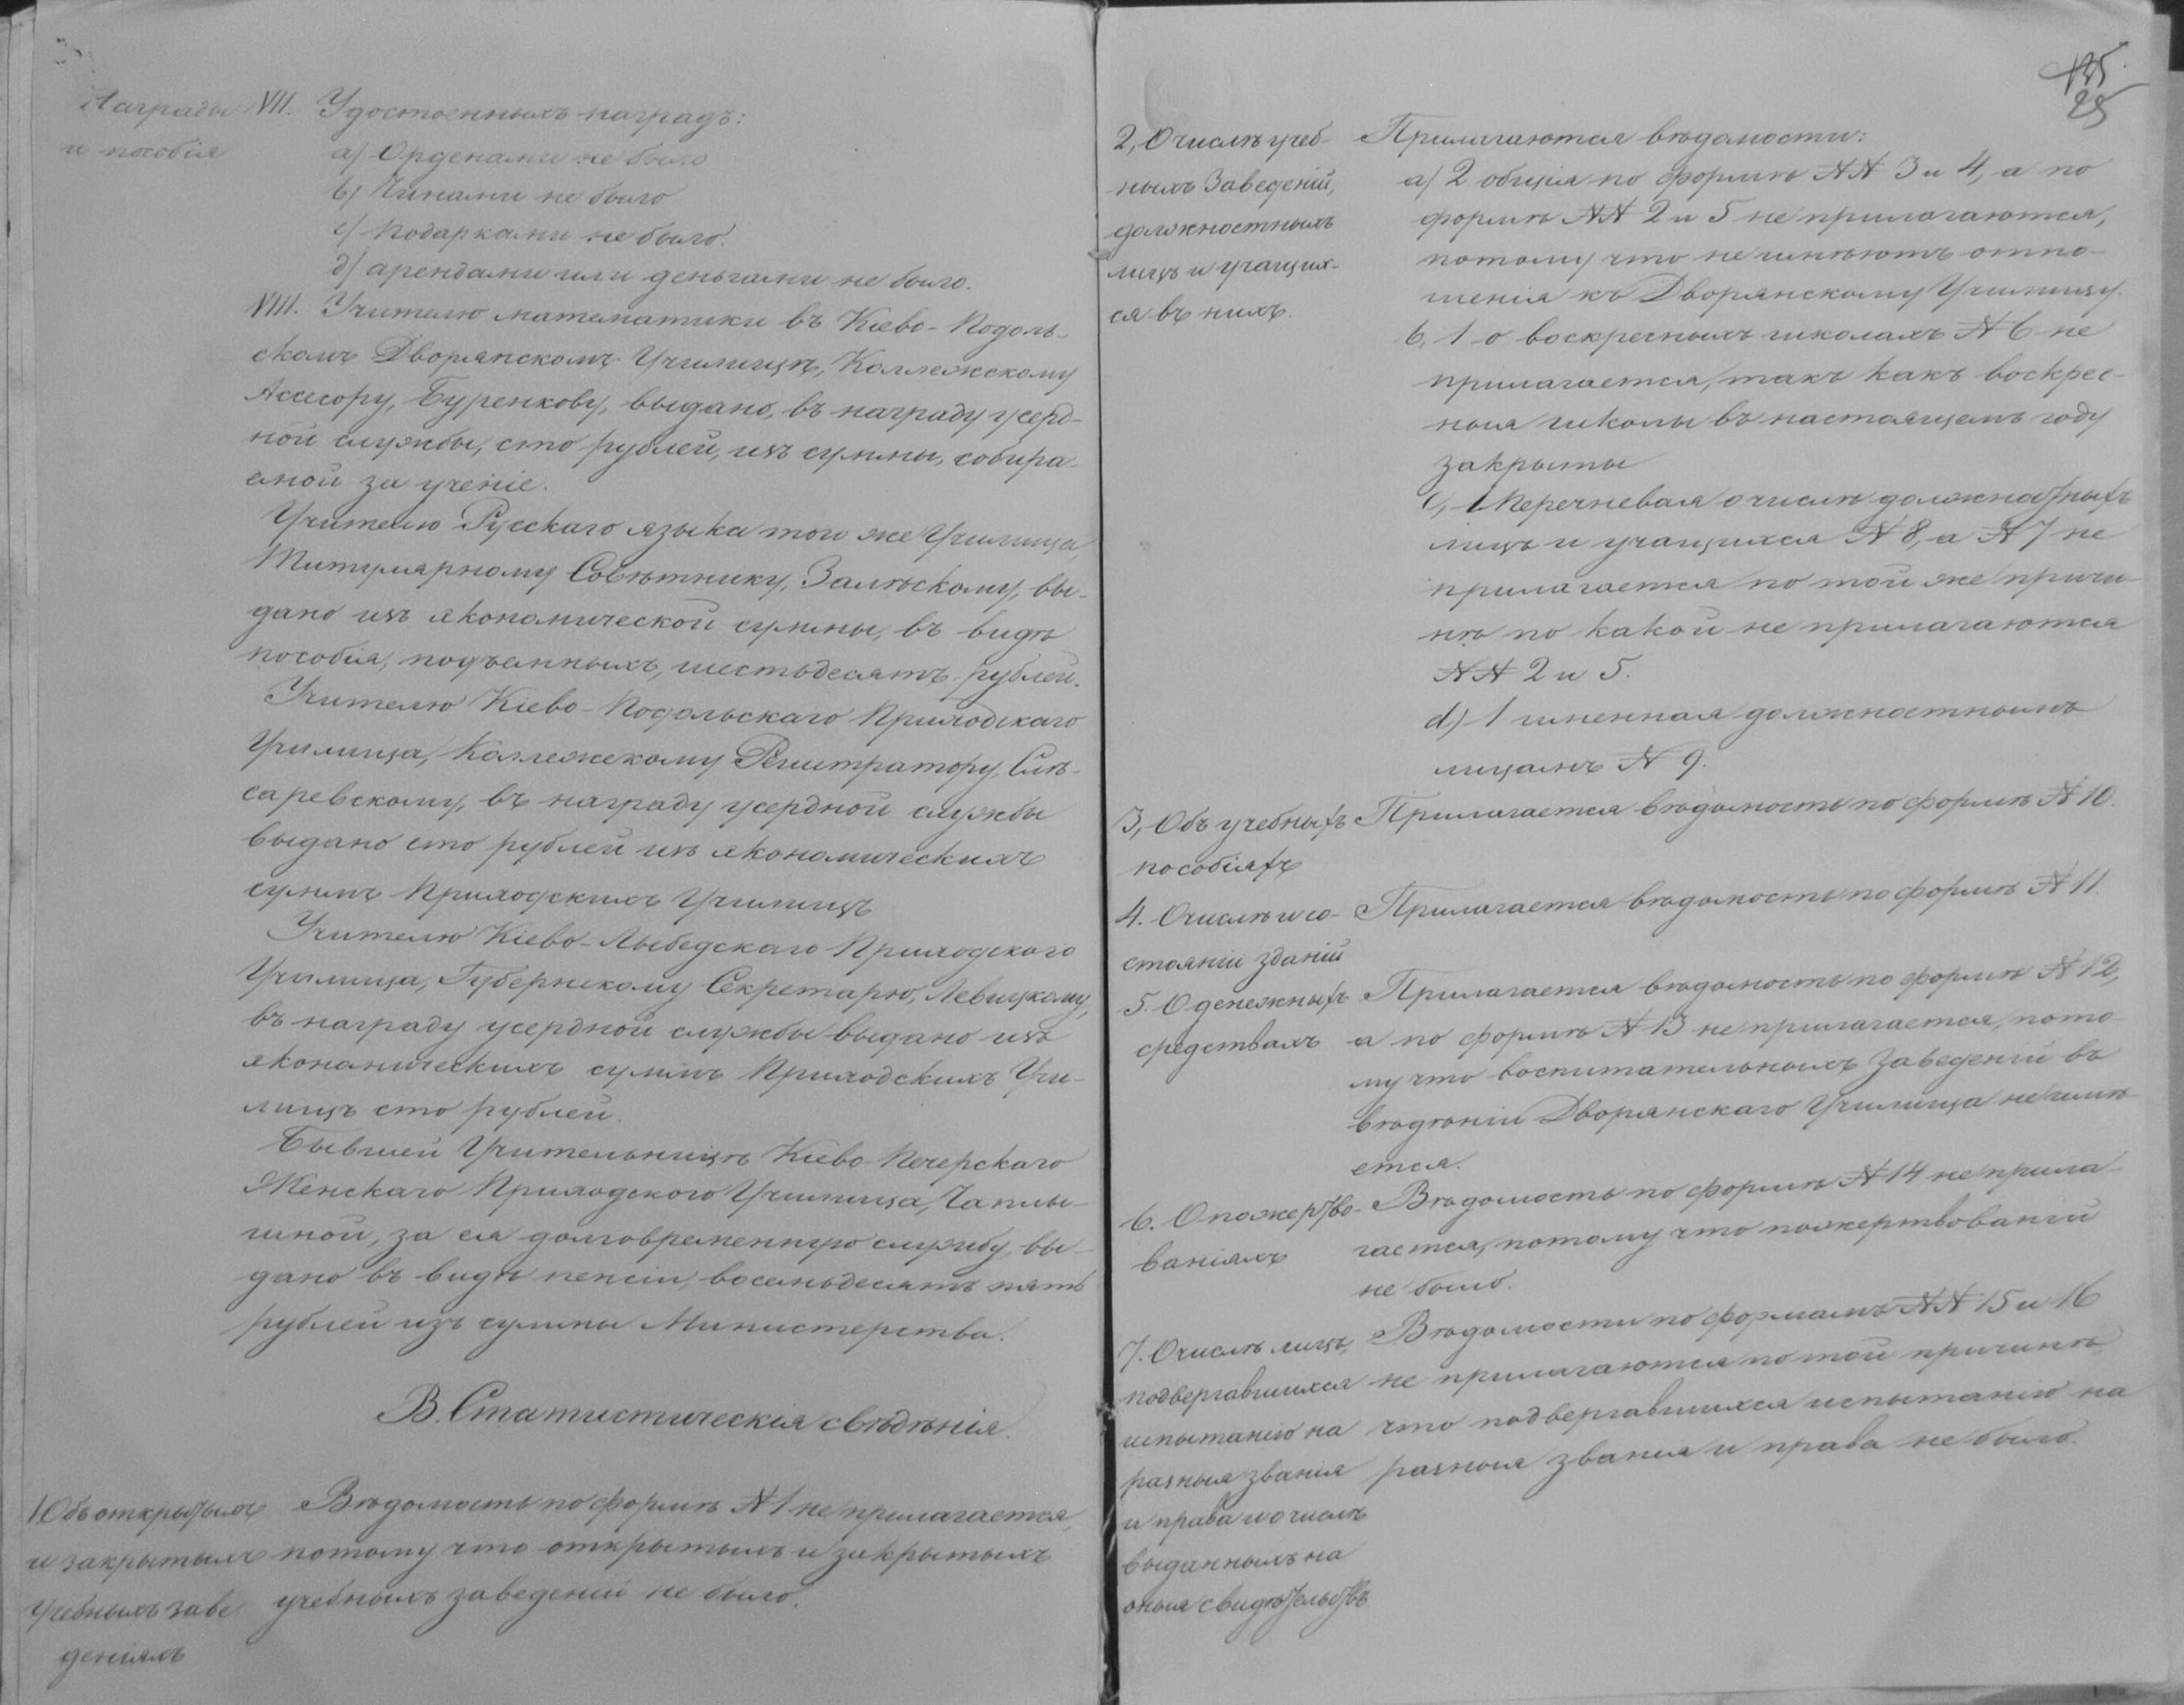 Награды
и пособія
VII. Удостоенныхъ наградъ:
a) Орденами не было
b) Чинами не было
c) Подарками не было.
d) арендами или деньгами не было.
VIII. Учителю математики въ Кіево-Подоль-
скомъ Дворянскомъ Училищѣ, Коллежскому
Ассесору, Буренкову, выдано, въ награду усерд-
ной службы, сто рублей, изъ суммы, собира-
емой за ученіе.
Учителю Русскаго языка того же Училища,
Титулярному Совѣтнику, Залѣскому, вы-
дано изъ экономической суммы, въ видѣ
пособія, подъемныхъ, шестьдесятъ рублей.
Учителю Кіево-Подольскаго Приходскаго
Училища, Коллежскому Регистратору, Слѣ-
саревскому, въ награду усердной службы
выдано сто рублей изъ экономическихъ
суммъ Приходскихъ Училищъ
Учителю Кіево-Лыбедскаго Приходскаго
Училища, Губернскому Секретарю, Левицкому,
въ награду усердной службы выдано изъ
экономическихъ суммъ Приходскихъ Учи-
лищъ сто рублей.
Бывшей Учительницѣ Кіево-Печерскаго
Женскаго Приходского Училища, Чаплы-
гиной, за ея долговременную службу, вы-
дано въ видѣ пенсіи, восемьдесятъ пять
рублей изъ суммы Министерства.
В. Статистическія свѣдѣнія.
1 Объ открытыхъ
и закрытыхъ
учебныхъ заве
деніяхъ
Вѣдомость по формѣ № 1 не прилагается,
потому что открытыхъ и закрытыхъ
учебныхъ заведеній не было.
135.
25
2, О числѣ учеб-
ныхъ Заведеній,
должностныхъ
лицъ и учащих-
ся въ нихъ.
Прилагаются вѣдомости:
a) 2 общія по формѣ №№ 3 и 4, а по
формѣ №№ 2 и 5 не прилагаются,
потому что не имѣютъ отно-
шенія къ Дворянскому Училищу.
b, 1 о воскресныхъ школахъ № 6 не
прилагается, такъ какъ воскрес-
ныя школы въ настоящемъ году
закрыты
c, 1 Перечневая о числѣ должностныхъ
лицъ и учащихся № 8, а № 7 не
прилагается по той же причи-
нѣ по какой не прилагаются
№№ 2 и 5.
d) 1 именная должностнымъ
лицамъ № 9.
3, Объ учебныхъ
пособіяхъ
Прилагается вѣдомость по формѣ № 10.
4. О числѣ и со-
стояніи зданій
Прилагается вѣдомость по формѣ № 11.
5. О денежныхъ
средствахъ
Прилагается вѣдомость по формѣ № 12,
а по формѣ № 13 не прилагается, пото-
му что воспитательныхъ Заведеній въ
вѣдѣніи Дворянскаго Училища не имѣ-
ется.
6. О пожертво-
ваніяхъ
Вѣдомость по формѣ № 14 не прила-
гается, потому что пожертвованій
не было.
7. О числѣ лицъ,
подвергавшихся
испытанію на
разныя званія
и права и о числѣ
выданныхъ на
оныя свидѣтельствъ
Вѣдомости по формамъ №№ 15 и 16
не прилагаются по той причинѣ,
что подвергавшихся испытанію на
разныя званія и права не было.